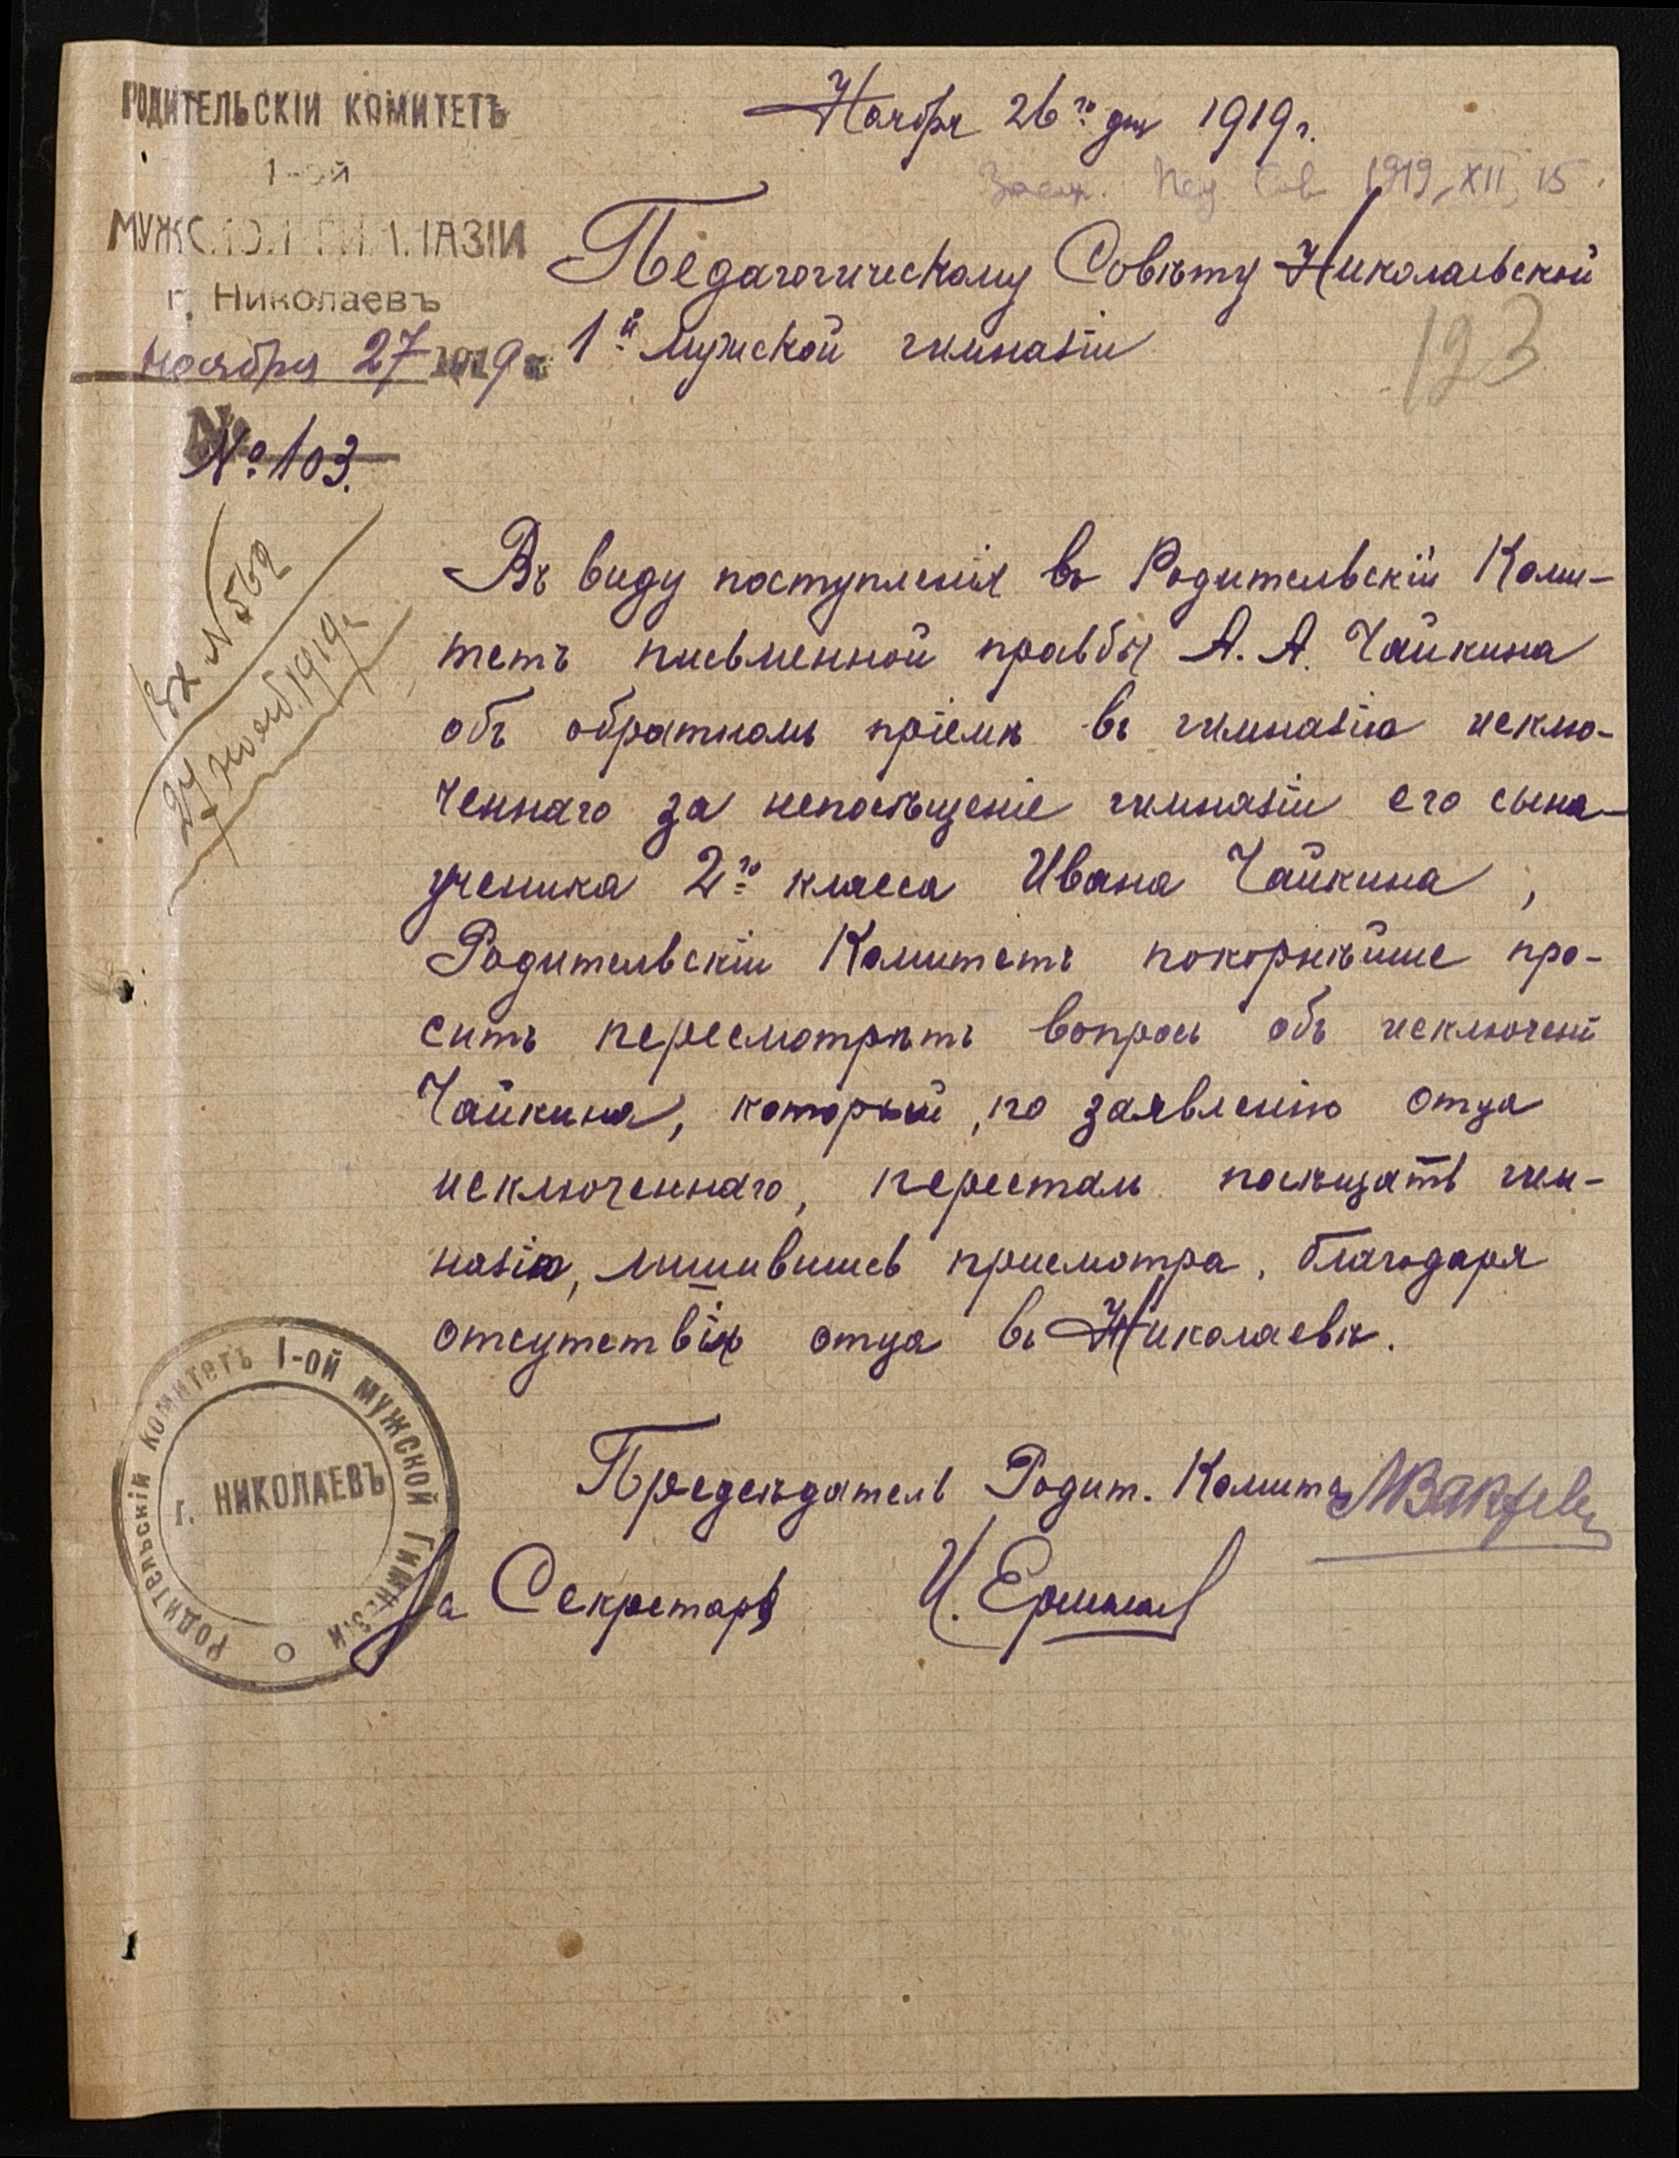 РОДИТЕЛЬСКІЙ КОМИТЕТЪ
1-ой
МУЖСКОЙ ГИМНАЗІИ
г. Николаевъ
Ноября 27 1919 г.
№ 103.
Ноября 26го дня 1919 г.
Засѣд. Пед. Сов. 1919, XII, 15.
Педагогическому Совѣту Николаевской
1й мужской гимназіи
123
Вх. № 562
27 нояб. 1919 г.
Въ виду поступленія въ Родительскій Коми-
тетъ письменной прозьбы А. А. Чайкина
объ обратномъ пріемѣ въ гимназію исклю-
ченнаго за непосѣщеніе гимназіи его сына-
ученика 2го класса Ивана Чайкина,
Родительскій Комитетъ покорнѣйше про-
ситъ пересмотрѣть вопросъ объ исключеніи
Чайкина, который, по заявленію отца
исключеннаго, пересталъ посѣщать гим-
назію, лишившись присмотра, благодаря
отсутствію отца въ Николаевѣ.
Предсѣдатель Родит. Комит.
За Секретаря И. Ермолаев
РОДИТЕЛЬСКІЙ КОМИТЕТЪ 1-ОЙ МУЖСКОЙ ГИМНАЗІИ
г. НИКОЛАЕВЪ